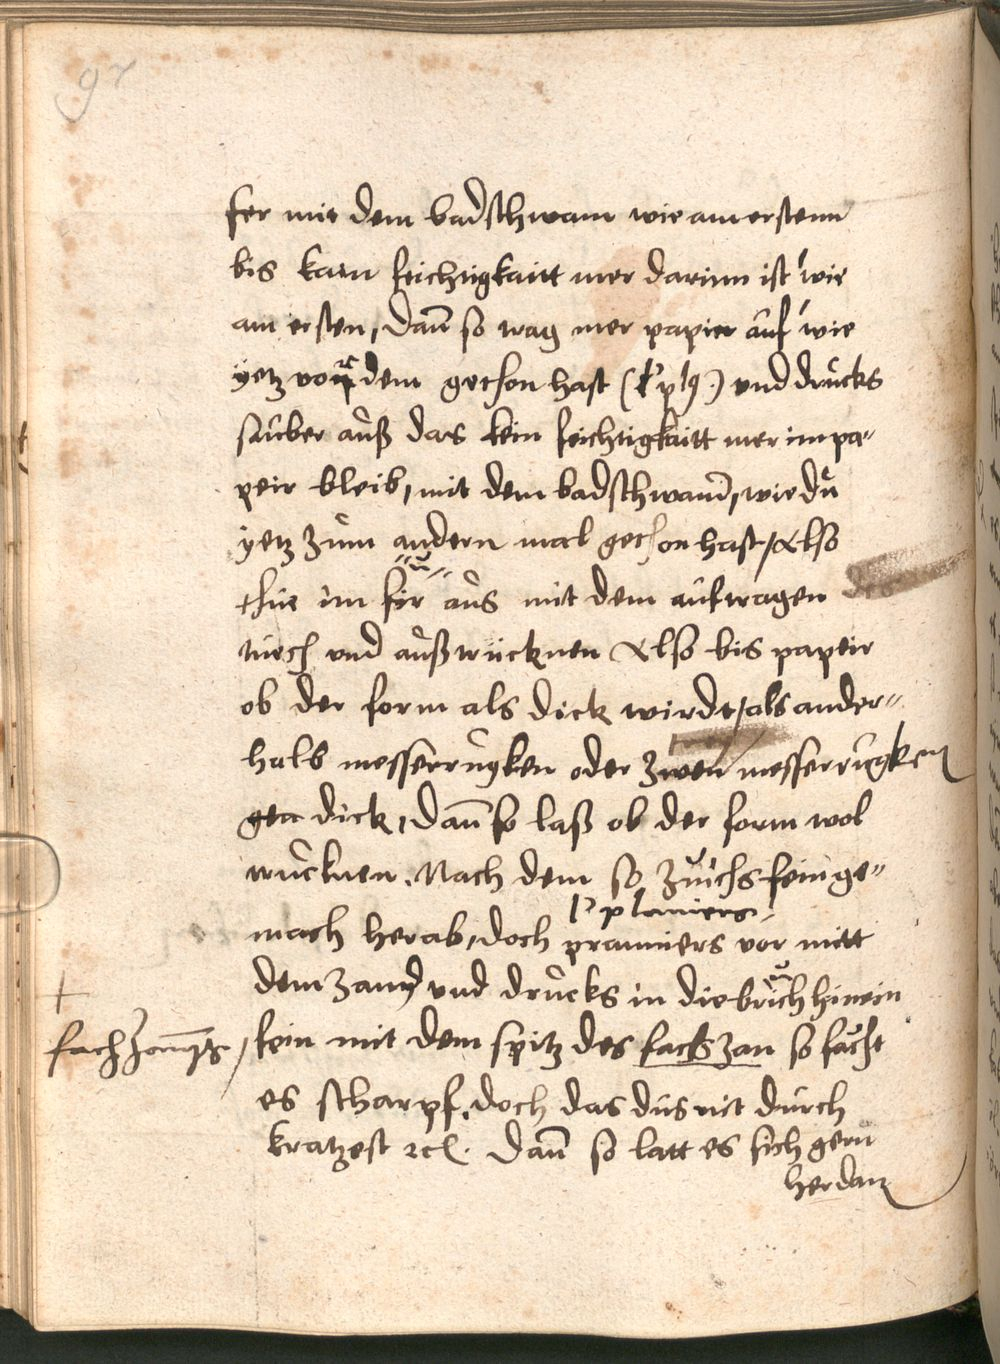 9v
ser mit dem badschwam wie am erstenn
bis kain feichtigkaitt mer darinn ist wie
am ersten, dan̄ so trag mer papier auf wie
yetz vor dem gethon hast ( ) vnd drucks
sauber auß das kein feichtigkaitt mer im pa„
peir bleib, mit dem badschwam̄, wie du
yetz zum andern mal gethon hast / Also
thue im für aus mit dem auftragen
tuech vnd außtrücknen Also bis papeir
ob der form als dick wirdt / als ander„
halb messerrugken oder zwen messerrugken
dick, dan̄ so laß ob der form wol
trucknen. Nach dem so zuichs fein ge„
planiers
mach herab, doch pranniers vor mitt
dem zand vnd drucks in die brüch hinein
fein mit dem spitz des zan so facht
es scharpf, doch das dus nit durch
kratzest ꝛc. dan̄ so latt es sich gern
herdan